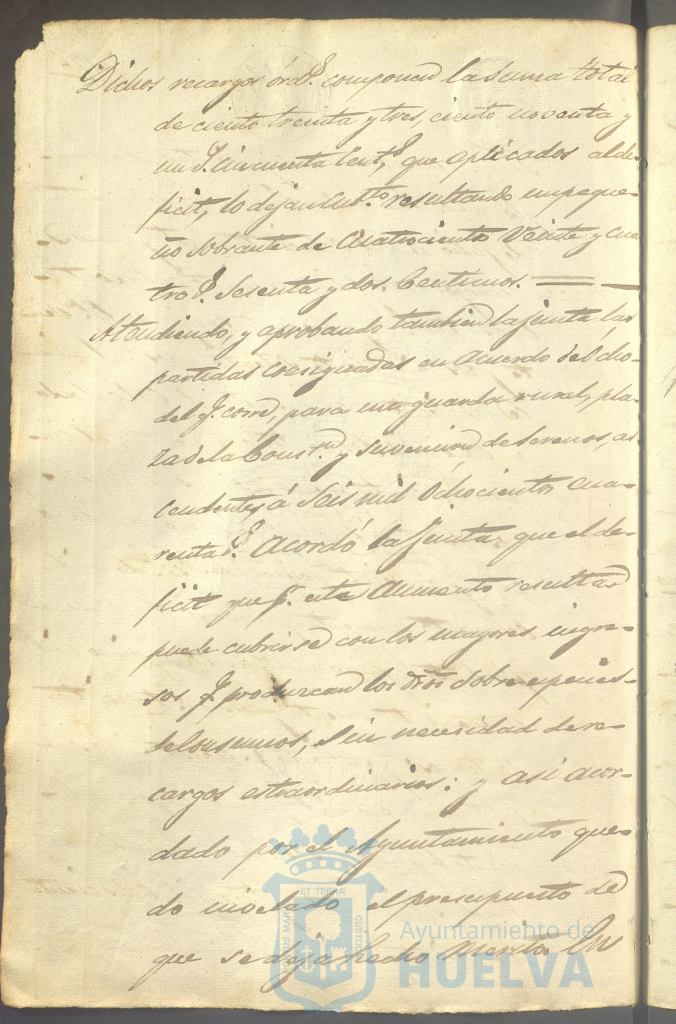 Dichos recargos órds. componen la suma total
de ciento treinta y tres, ciento noventa y
un rs. cincuenta cents., que aplicados al de-
ficit, lo dejan cubto. resultando un peque-
ño sobrante de cuatrociento veinte y cua
tro rs. sesenta y dos centimos.
Atendiendo, y aprobando tambien la junta las
partidas consignadas en acuerdo del dia
del q. corre, para un guarda rural, pla-
za de la Constn. y suvencion de serenos, as
cendentes á seis mil ochocientos cua-
renta rs. acordó la junta que el de-
ficit que pr. este aumento resulta
puede cubrirse con los mayores ingre-
sos q. produzcan los dros sobre especies
de consumos, sin necesidad de re-
cargos estraordinarios: y asi acor-
dado por el Ayuntamiento que-
do nivelado el presupuesto de
que se deja hecho merito.
ET TERRAE
PORTUS MARIS
CUSTODIA
Ayuntamiento de
HUELVA